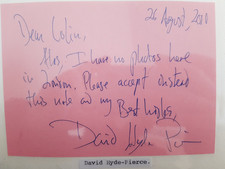 26 August, 2010
Dear Colin,
Alas, I have no photos here
in London. Please accept instead
this note and my Best Wishes,
David Hyde Pierce
David Hyde-Pierce.